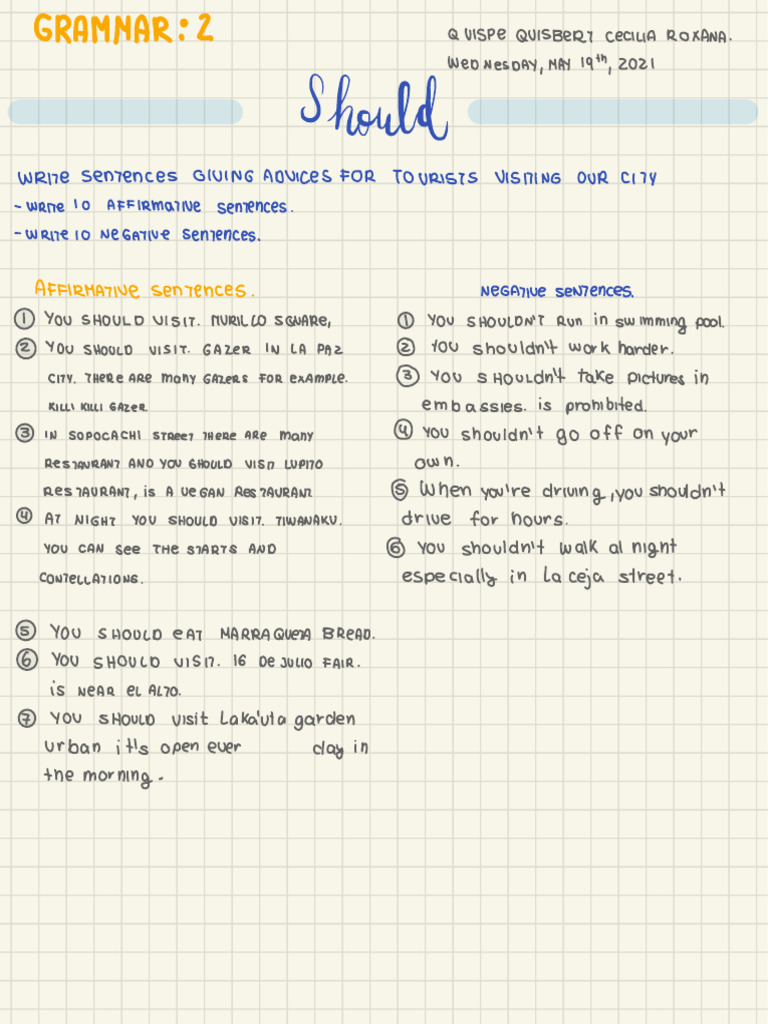 GRAMMAR: 2
QUISPE QUISBERT CECILIA ROXANA.
WEDNESDAY, MAY 19th, 2021
Should
WRITE SENTENCES GIVING ADVICES FOR TOURISTS VISITING OUR CITY
- WRITE 10 AFFIRMATIVE SENTENCES.
- WRITE 10 NEGATIVE SENTENCES.
AFFIRMATIVE SENTENCES.
1 YOU SHOULD VISIT. MURILLO SQUARE,
2 YOU SHOULD VISIT. GAZER IN LA PAZ
CITY. THERE ARE MANY GAZERS FOR EXAMPLE.
KILLI KILLI GAZER.
3 IN SOPOCACHI STREET THERE ARE MANY
RESTAURANT AND YOU SHOULD VISIT LUPITO
RESTAURANT, IS A VEGAN RESTAURANT
4 AT NIGHT YOU SHOULD VISIT. TIWANAKU.
YOU CAN SEE THE STARTS AND
CONTELLATIONS.
5 YOU SHOULD EAT MARRAQUETA BREAD.
6 YOU SHOULD VISIT. 16 DE JULIO FAIR.
is NEAR EL ALTO.
7 YOU SHOULD visit Laka'uta garden
urban it's open ever day in
the morning.
NEGATIVE SENTENCES.
1 YOU SHOULDN'T RUN in swimming pool.
2 YOU shouldn't work harder.
3 YOU SHOULDn't take pictures in
embassies. is prohibited.
4 you shouldn't go off on your
own.
5 When you're driving, you shouldn't
drive for hours.
6 you shouldn't walk al night
especially in La ceja street.